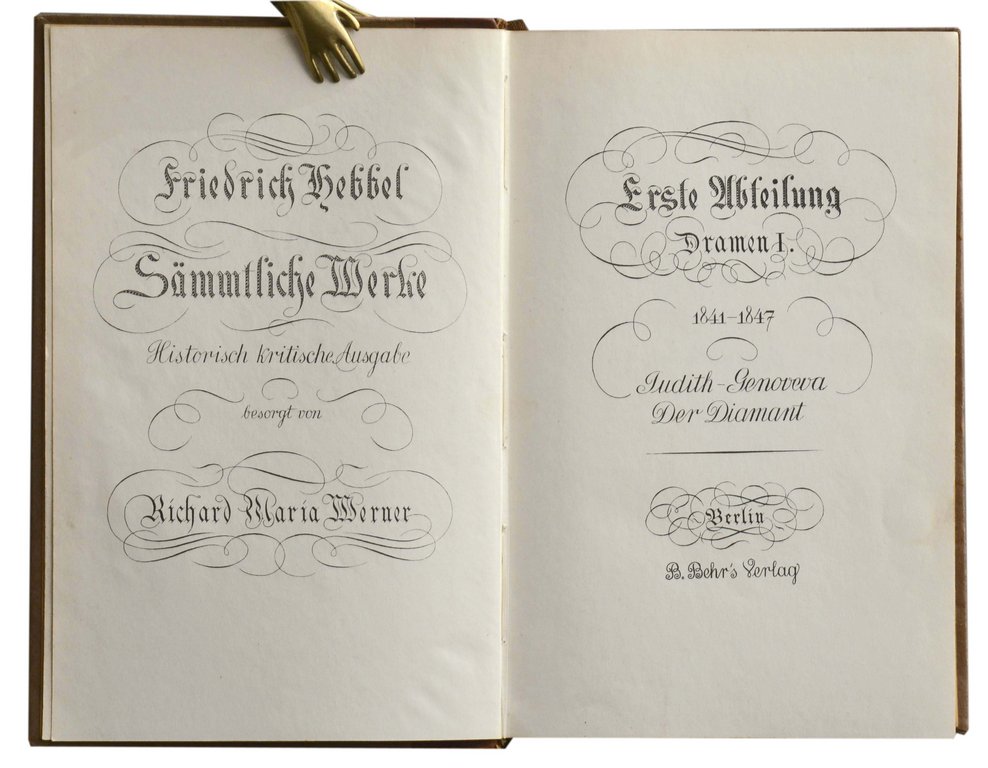 Friedrich Hebbel
Sämmtliche Werke
Historisch kritische Ausgabe
besorgt von
Richard Maria Werner
Erste Abteilung
Dramen I.
1841-1847
Judith - Genoveva
Der Diamant
Berlin
B. Behr's Verlag